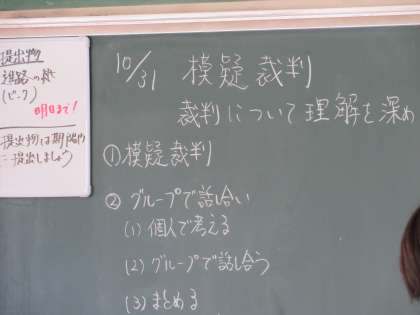 提出物
進路への道
(ピンク)
明日まで!
提出物は期限内
に提出しましょう
10/31 模擬裁判
裁判について理解を深め
① 模擬裁判
② グループで話し合い
(1) 個人で考える
(2) グループで話し合う
(3) まとめる